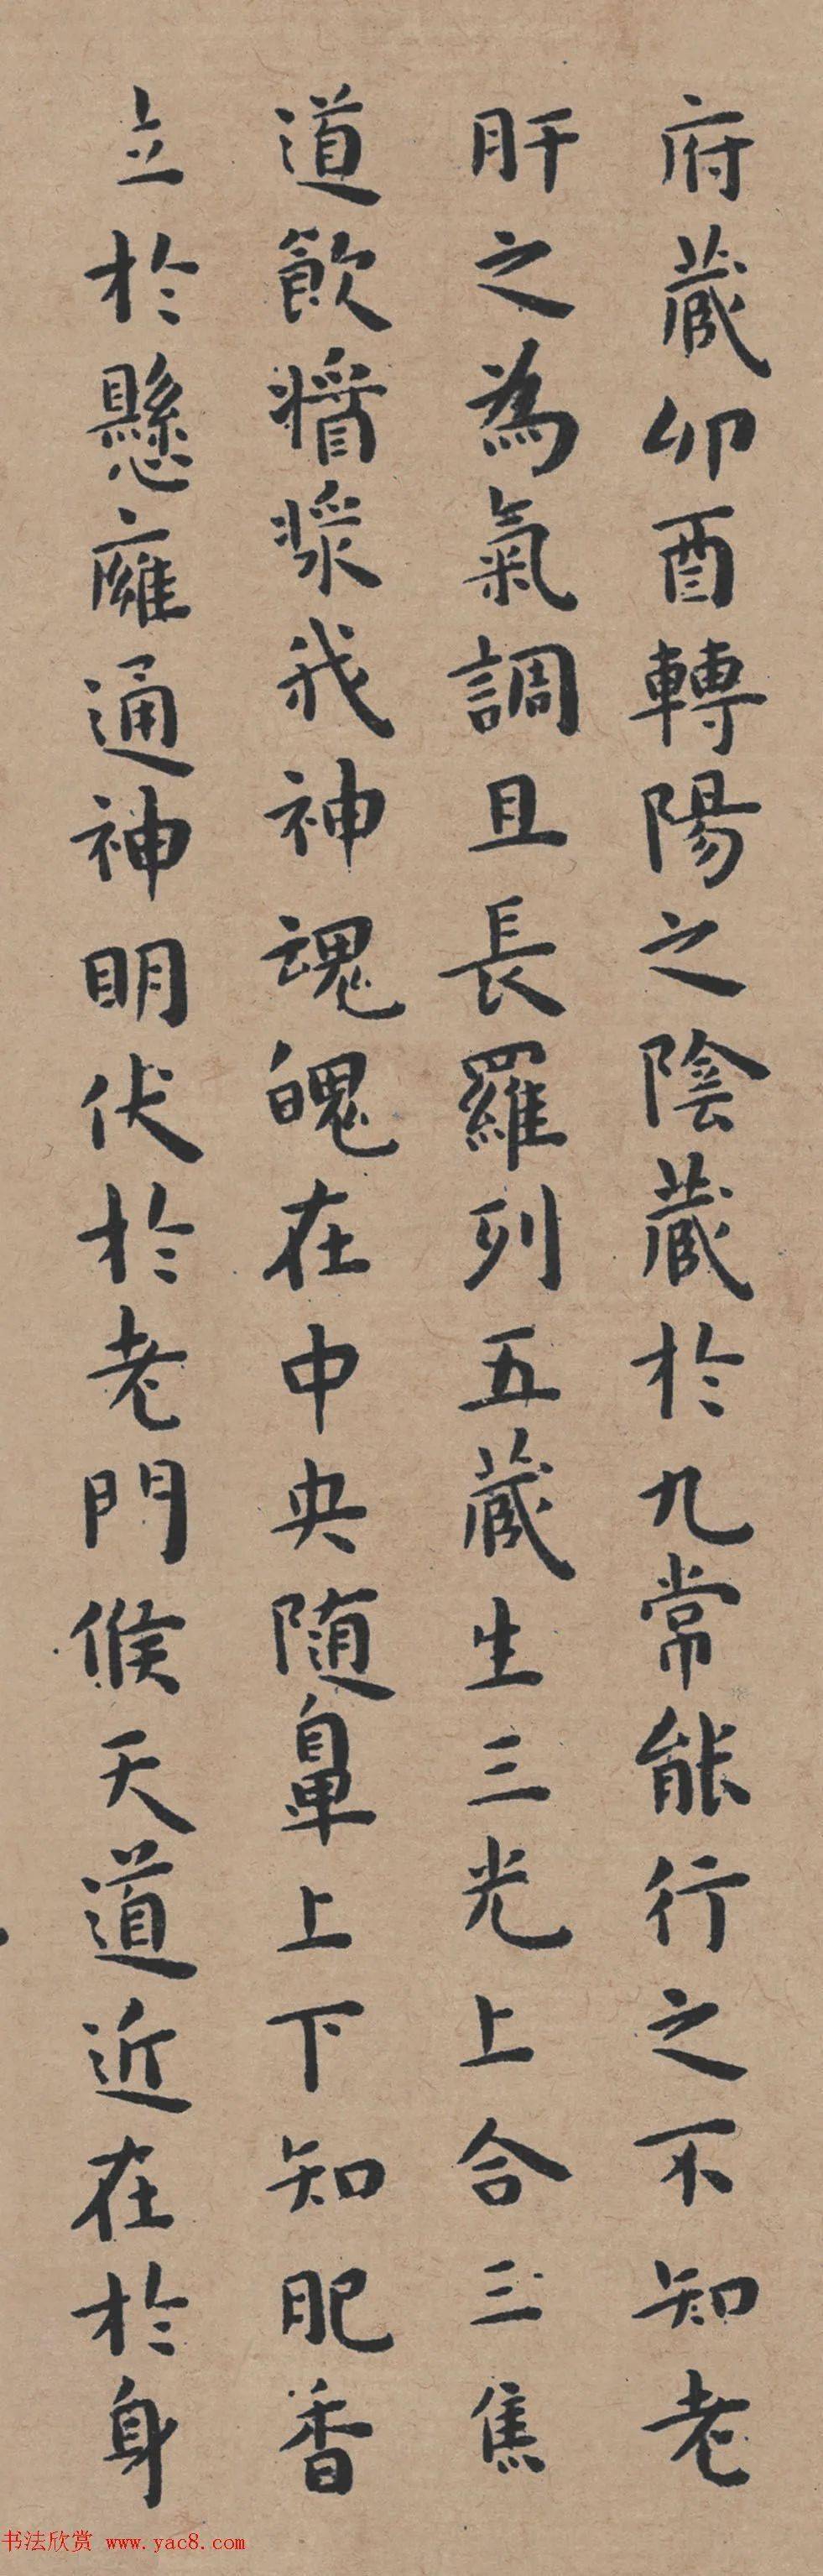 府藏卯酉轉陽之陰藏於九常能行之不知老
肝之為氣調且長羅列五藏生三光上合三焦
道飲醬漿我神魂魄在中央随鼻上下知肥香
立於懸廱通神明伏於老門候天道近在於身
书法欣赏 www.yac8.com